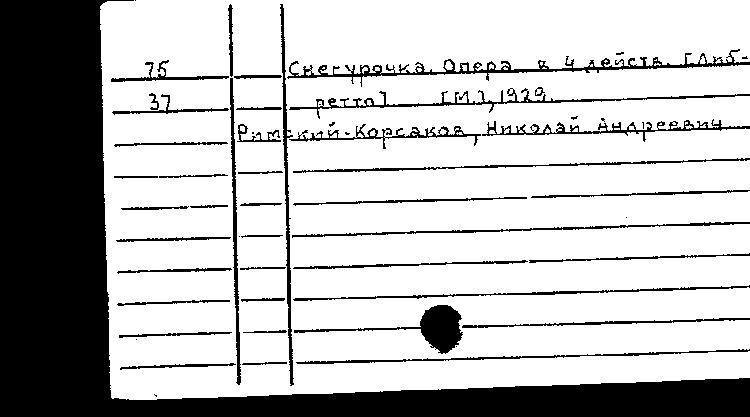 75 Снегурочка. Опера в 4 действ. [Либ-
37 ретто] [М.], 1929.
Римский-Корсаков, Николай Андреевич